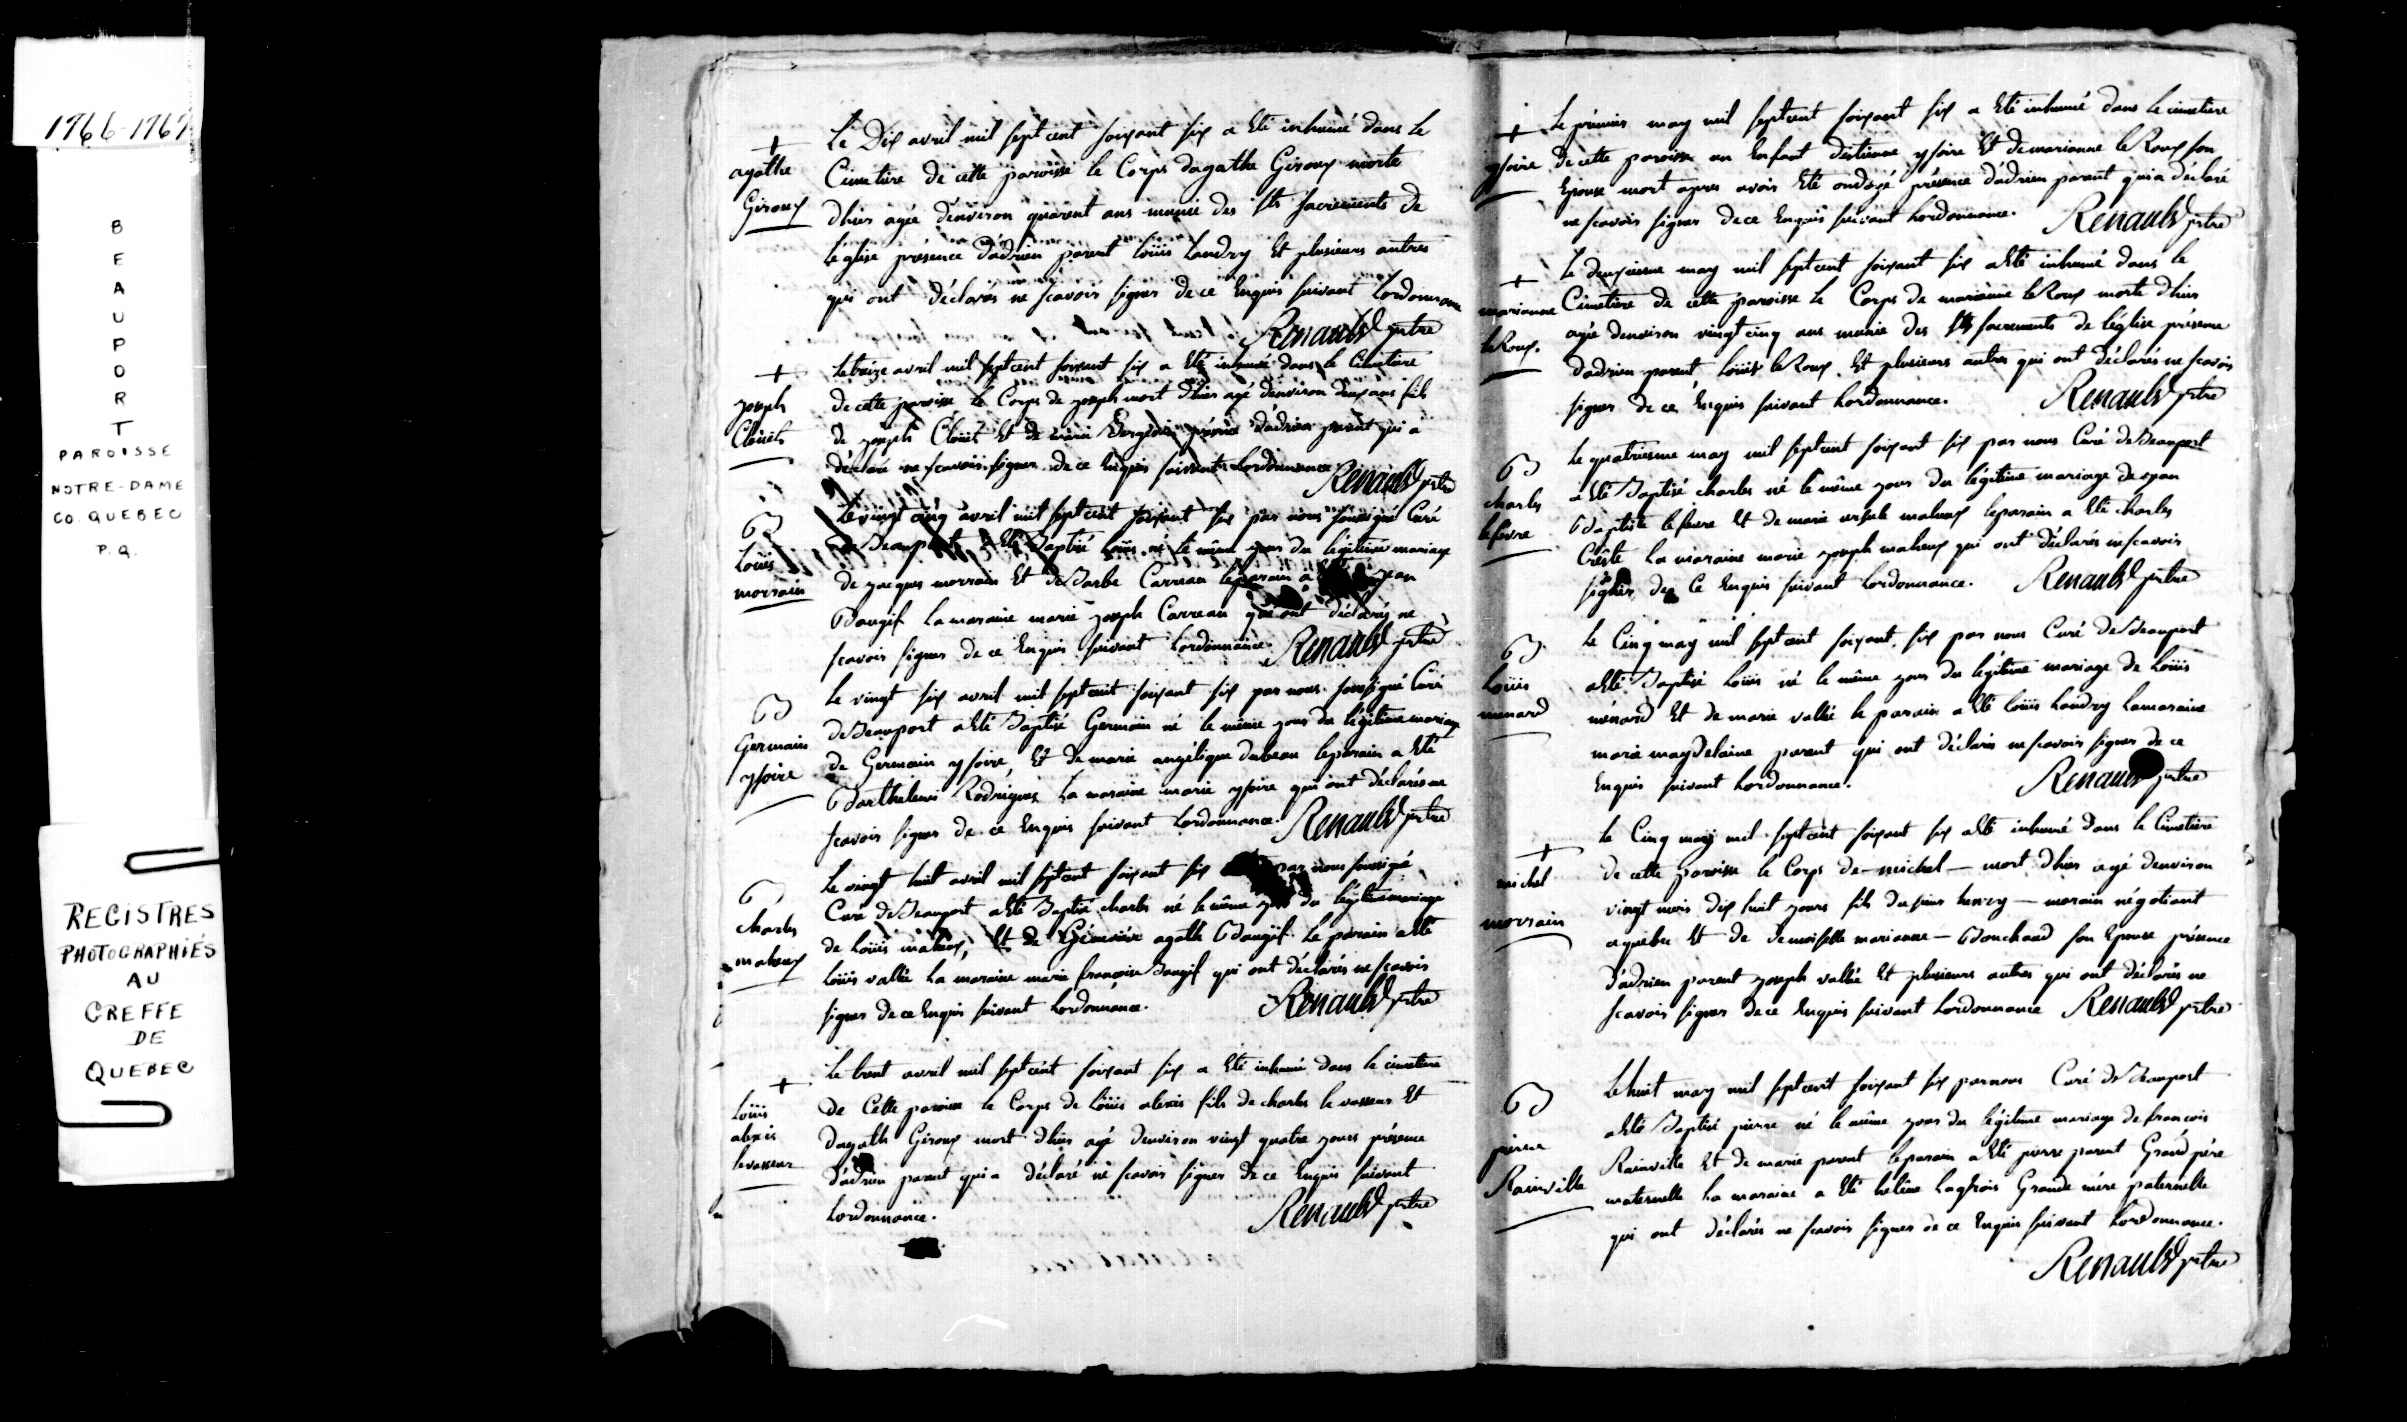 1766-1767
B
E
A
U
P
O
R
T
PAROISSE
NOTRE-DAME
CO. QUEBEC
P.Q.
REGISTRES
PHOTOGRAPHIÉS
AU
GREFFE
DE
QUEBEC
+
agathe
Giroux
Le Dix avril mil sept cent soixant six a Eté inhumé dans le
Cimetière de cette paroisse le Corps dagathe Giroux morte
d'hier agé d'environ quarent ans munie des Sts sacrements de
Leglise présence dadrien parent Loüis Landry Et plusieurs autres
qui ont déclarés ne scavoir signer de ce Enquis suivant Lordonnance
Renauld prtre
+
joseph
Cloüet
Le treize avril mil sept cent soixant six a Eté inhumé dans le Cimetiere
de cette paroisse le Corps de joseph mort d'hier agé denviron deux ans fils
de joseph Cloüet Et de marie présence dadrien parent qui a
déclaré ne scavoir signer de ce Enquis suivant Lordonnance
Renauld prtre
B
Loüis
morrain
Le vingt cinq avril mil sept cent soixant six par nous soussigné Curé
de Beauport a Eté Baptisé Loüis né le même jour du légitime mariage
de jacques morrain Et de Barbe Carreau le parain a jean
Baugif La maraine marie joseph Carreau qui ont déclarés ne
scavoir signer de ce Enquis suivant Lordonnance. Renauld prtre
B
Germain
ysoire
Le vingt six avril mil sept cent soixant six par nous soussigné Curé
de Beauport a Eté Baptisé Germain né le même jour du légitime mariage
de Germain ysoire, Et de marie angélique dubeau le parain a Eté
Barthelemi Rodrigues La maraine marie ysoire qui ont déclarés ne
scavoir signer de ce Enquis suivant Lordonnance. Renauld prtre
B
charles
maheux
Le vingt huit avril mil sept cent soixant six par nous soussigné
Curé de Beauport a Eté Baptisé charles né le même jour du légitime mariage
de Loüis maheux, Et de Géneviève agathe Baugif Le parain a Eté
Loüis vallée La maraine marie françoise Baugif qui ont déclarés ne scavoir
signer de ce Enquis suivant Lordonnance. Renauld prtre
+
Loüis
alexis
levasseur
Le trent avril mil sept cent soixant six a Eté inhumé dans le cimetiere
de Cette paroisse le Corps de Loüis alexis fils de charles le vasseur Et
dagathe Giroux mort d'hier agé denviron vingt quatre jours présence
dadrien parent qui a déclaré ne scavoir signer de ce Enquis suivant
Lordonnance. Renauld prtre
+
ysoire
Le premier may mil sept cent soixant six a Eté inhumé dans le cimetiere
de cette paroisse un Enfant d'estienne ysoire Et de marianne le Roux son
Epouse mort apres avoir Eté ondoyé présence dadrien parent qui a déclaré
ne scavoir signer de ce Enquis suivant Lordonnance. Renauld prtre
+
marianne
le Roux.
Le deuxieme may mil sept cent soixant six a Eté inhumé dans le
Cimetiere de cette paroisse le Corps de marianne le Roux morte d'hier
agée denviron vingt cinq ans munie des Sts sacrements de léglise présence
dadrien parent Loüis le Roux. Et plusieurs autres qui ont déclarés ne scavoir
signer de ce Enquis suivant Lordonnance. Renauld prtre
B
charles
lefevre
Le quatrieme may mil sept cent soixant six par nous Curé de Beauport
a Eté Baptisé charles né le même jour du légitime mariage de jean
Baptiste lefevre Et de marie ursule maheux le parain a Eté charles
Crête La maraine marie joseph maheux qui ont déclarés ne scavoir
signer de Ce Enquis suivant Lordonnance. Renauld prtre
B
Loüis
menard
Le Cinq may mil sept cent soixant six par nous Curé de Beauport
a Eté Baptisé Loüis né le même jour du légitime mariage de Loüis
ménard Et de marie vallée le parain a Eté Loüis Landry La maraine
marie magdelaine parent qui ont déclarés ne scavoir signer de ce
Enquis suivant Lordonnance. Renauld prtre
+
michel
morrain
Le Cinq may mil sept cent soixant six a Eté inhumé dans le Cimetiere
de cette paroisse le Corps de michel mort d'hier agé denviron
vingt mois dix huit jours fils du sieur henry morain négotiant
a quebec Et de demoiselle marianne Bouchaud son Epouse présence
dadrien parent joseph vallée Et plusieurs autres qui ont déclarés ne
scavoir signer de ce Enquis suivant Lordonnance Renauld prtre
B
pierre
Rainville
Le huit may mil sept cent soixant six par nous Curé de Beauport
a Eté Baptisé pierre né le même jour du légitime mariage de francois
Rainville Et de marie parent le parain a Eté pierre parent Grand père
maternelle La maraine a Eté hélène Grande mère paternelle
qui ont déclarés ne scavoir signer de ce Enquis suivant Lordonnance.
Renauld prtre